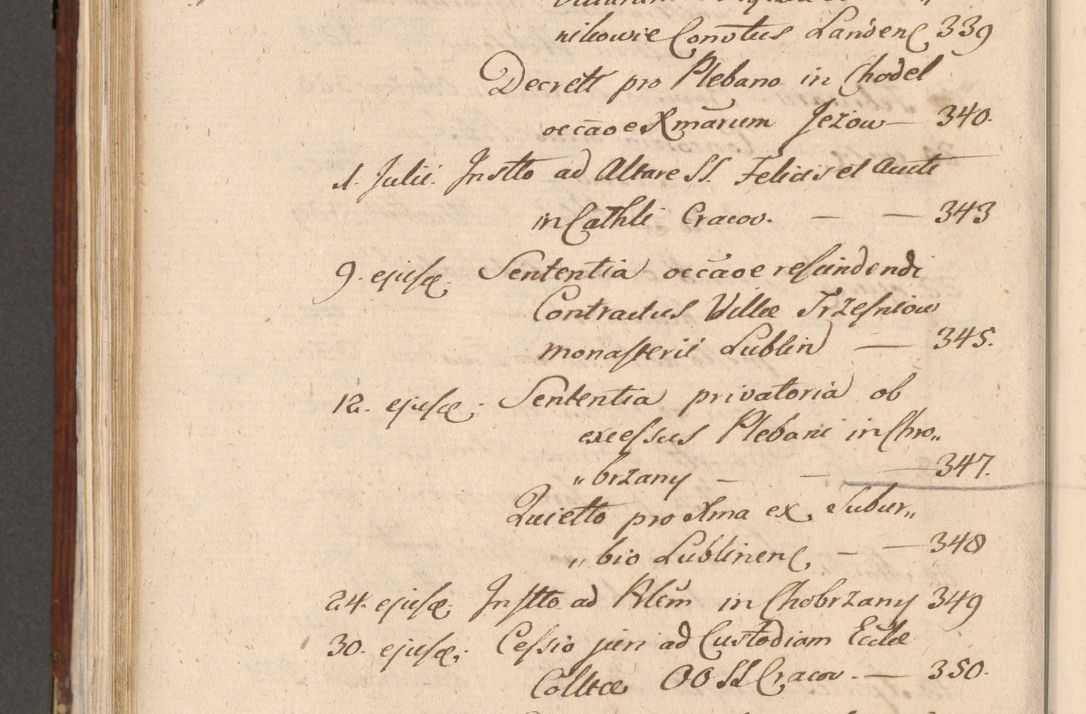 nikowie Conotus Landenς 339
Decrett pro Plebano in Chodel
occãoe Xmãrum Jezow — 340.
1. Julii. Instto ad Altare SS. Felicis et Aucti
in Cathli Cracov. — — 343
9. ejusdæ; Sententia occãoe rescindendi
Contractus Villæ Trzesniow
monasterii Lublin — 345.
12. ejusdæ; Sententia privatoria ob
excessus Plebani in Chro„
„brzany — — 347.
Quietto pro Xma ex Subur„
„bio Lublinenς, — — 348
24. ejusdæ; Instto ad Plem̃ in Chobrzany 349
30. ejusdæ; Cessio juri ad Custodiam Ecclæ
Colltæ OO SS Cracov. — 350.